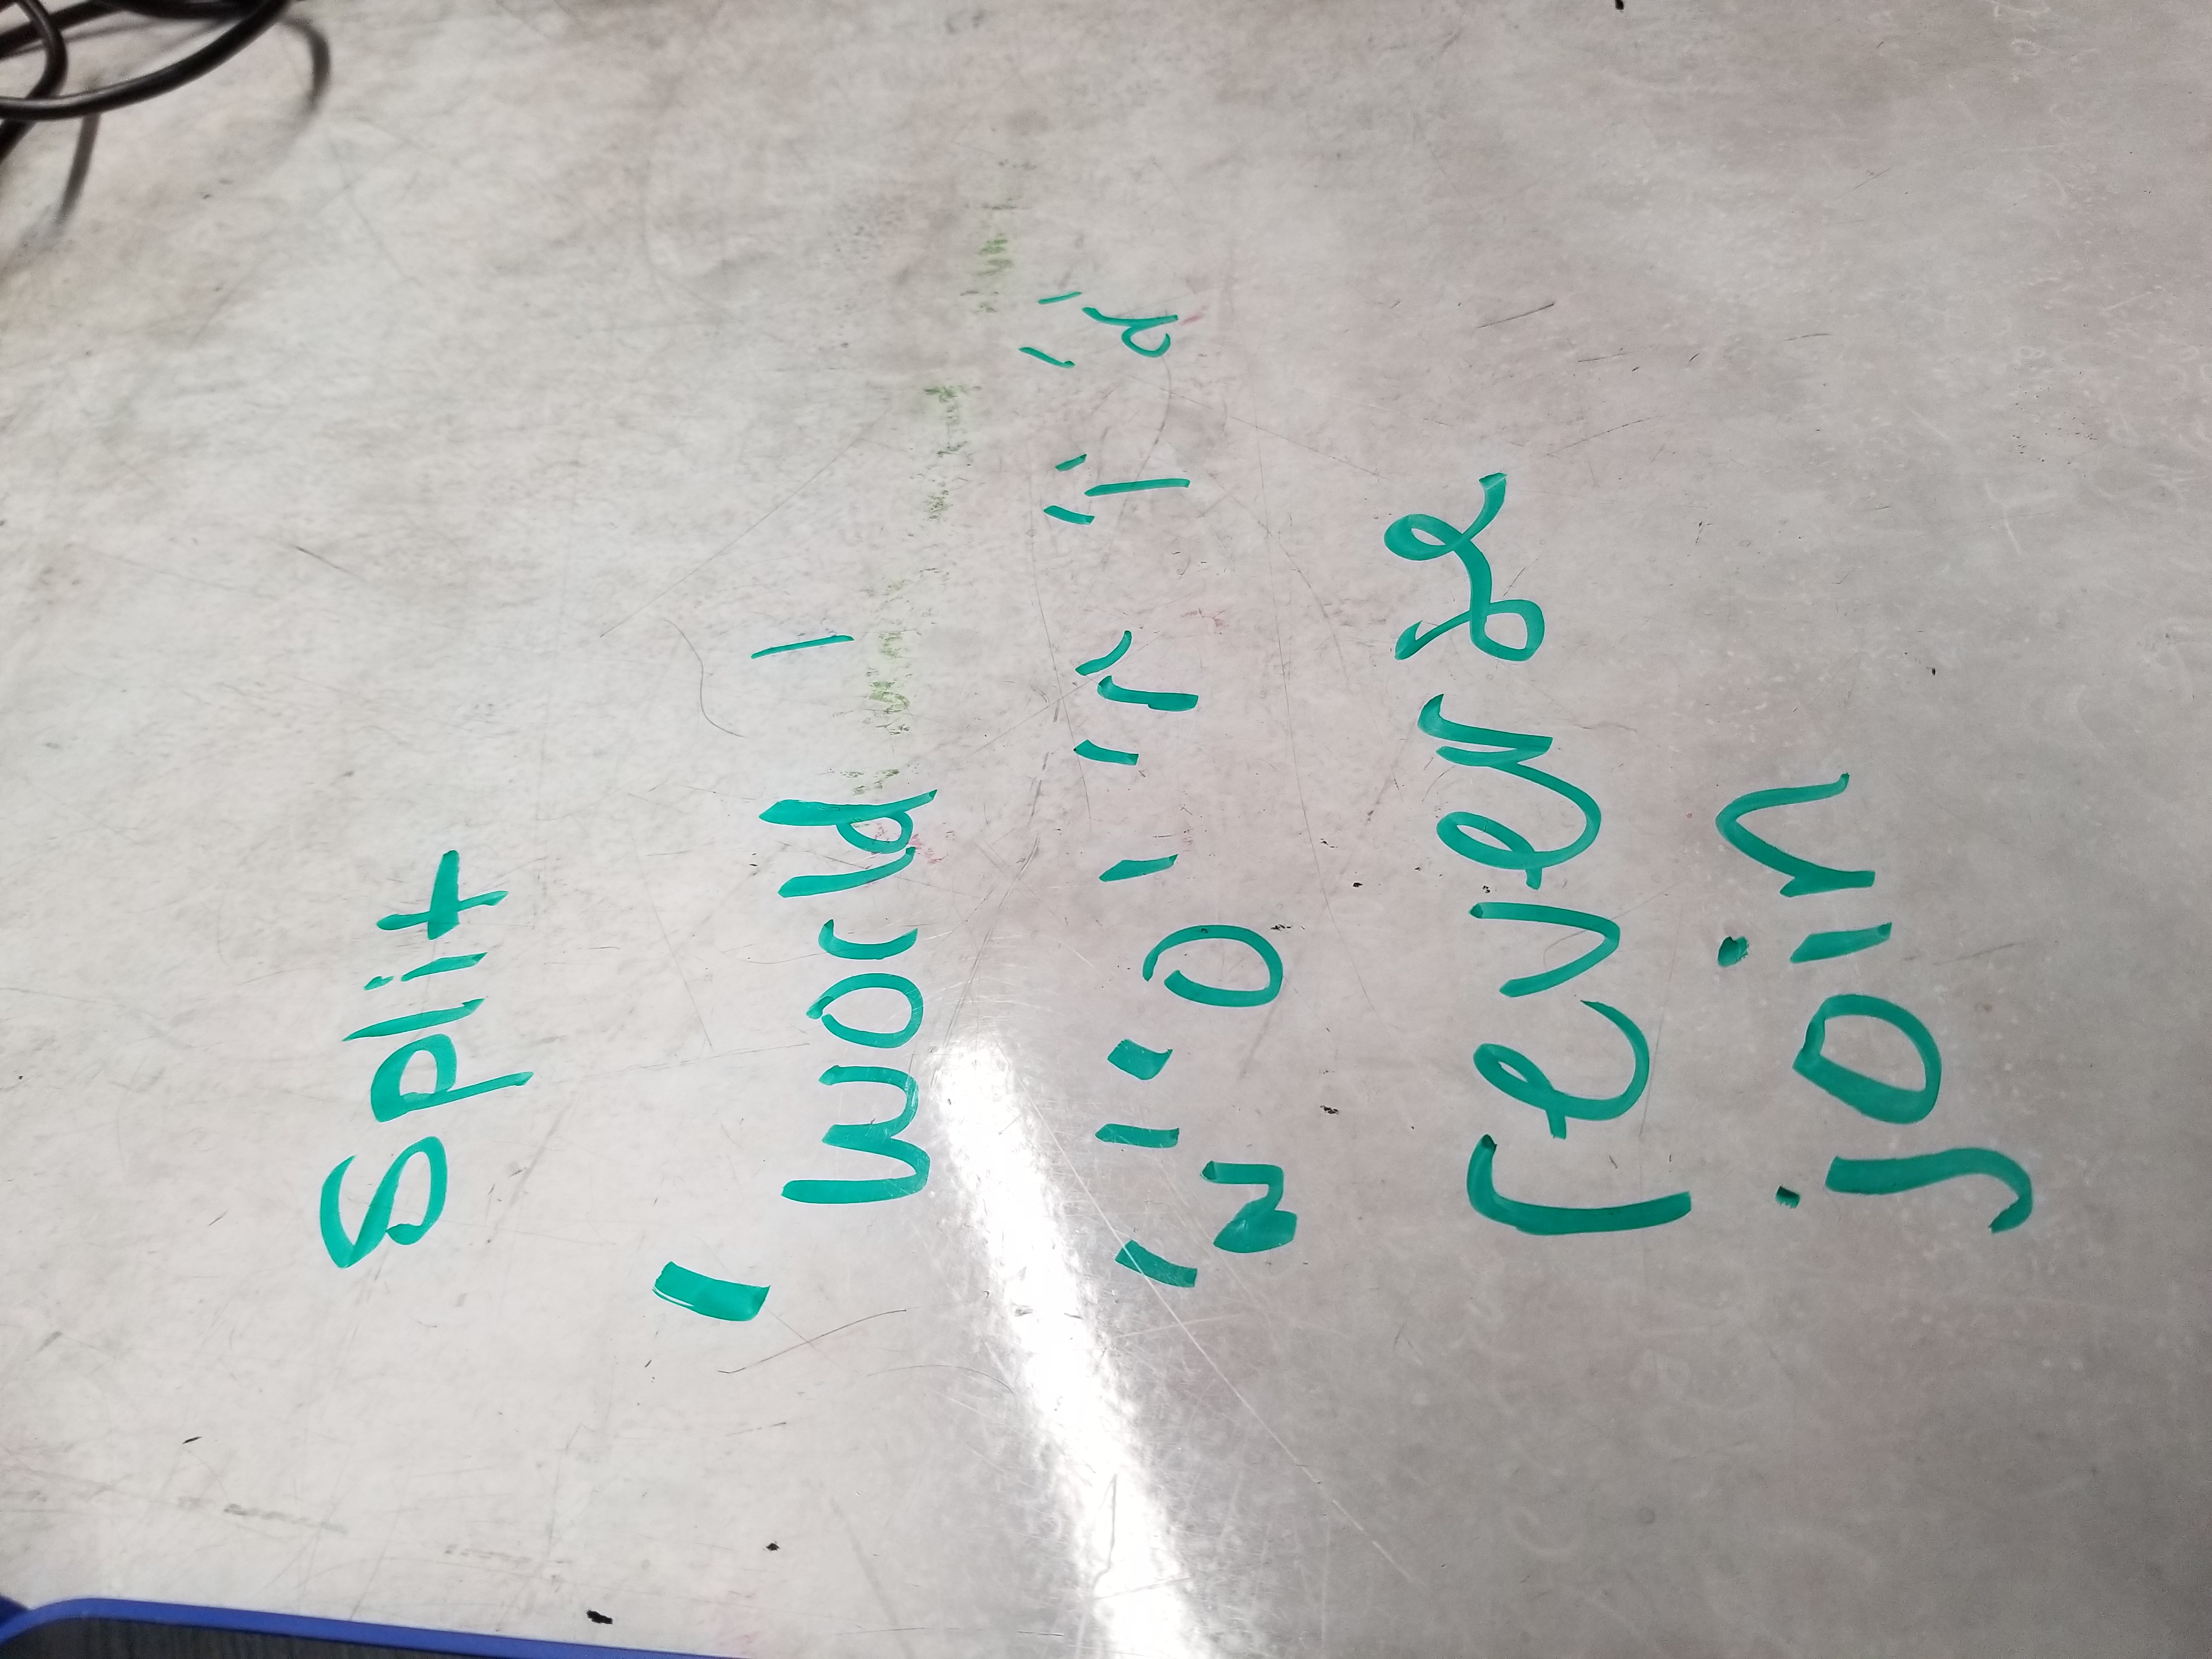 split
' world '
'w' 'o' 'r' 'l' 'd'
reverse
join